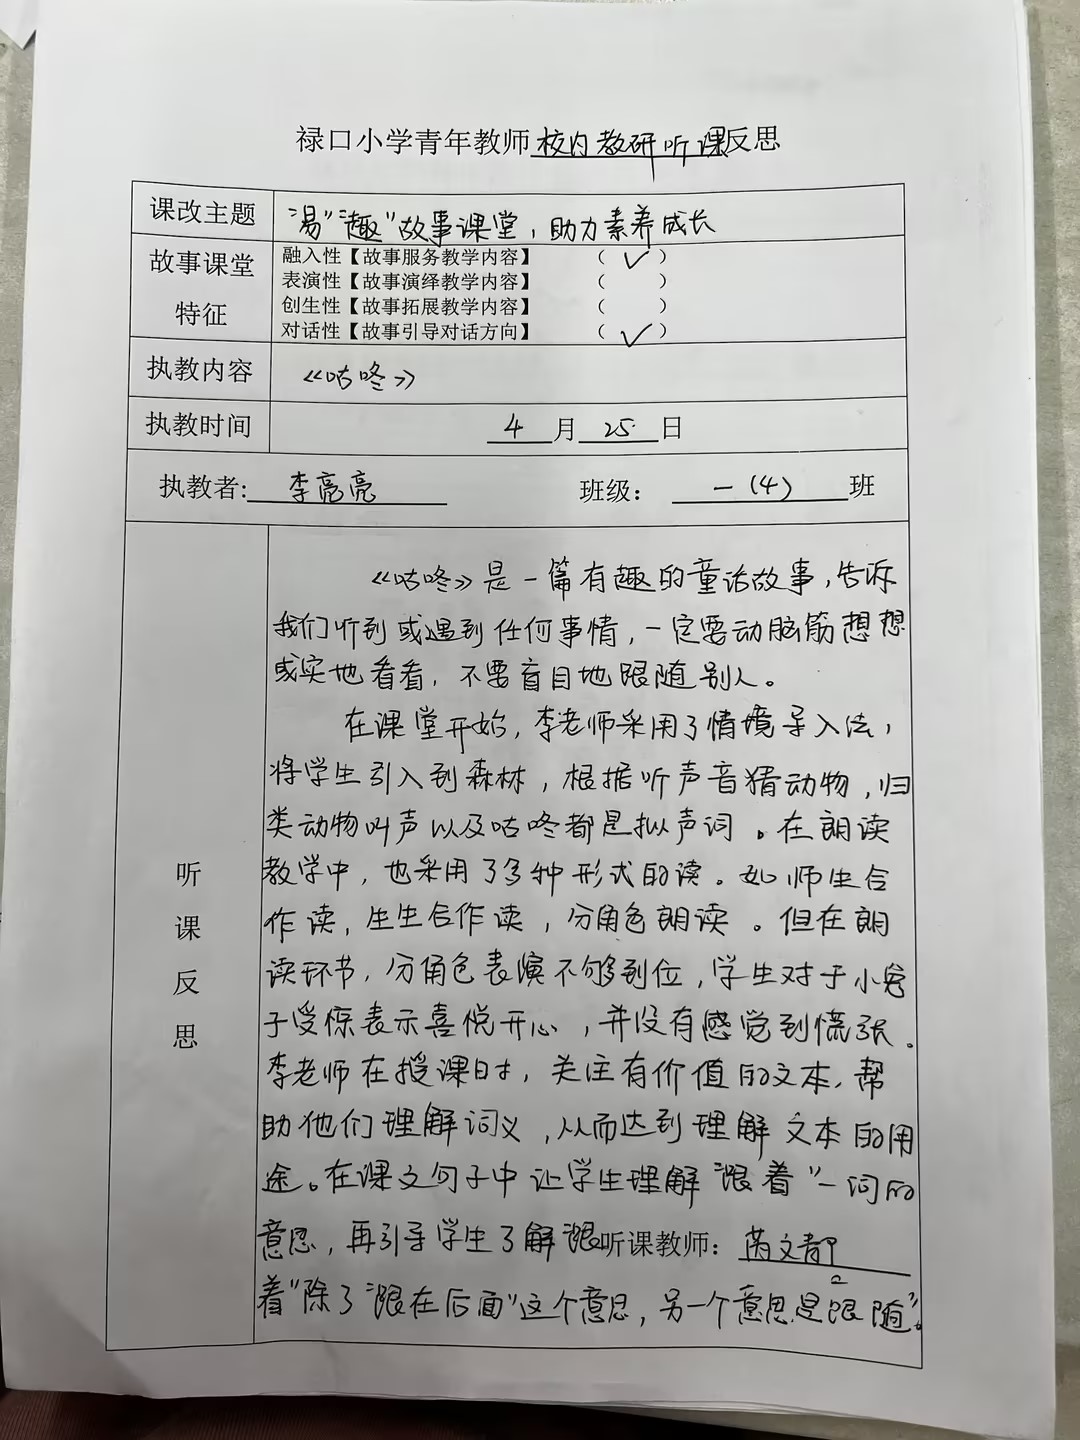 禄口小学青年教师校内教研听课反思
课改主题
“易”“趣”故事课堂，助力素养成长
故事课堂
特征
融入性【故事服务教学内容】 （ ✓ ）
表演性【故事演绎教学内容】 （ ）
创生性【故事拓展教学内容】 （ ）
对话性【故事引导对话方向】 （ ✓ ）
执教内容 《咕咚》
执教时间 4月25日
执教者：李亮亮 班级：一（4）班
听
课
反
思
《咕咚》是一篇有趣的童话故事，告诉
我们听到或遇到任何事情，一定要动脑筋想想
或实地看看，不要盲目地跟随别人。
在课堂开始，李老师采用了情境导入法，
将学生引入到森林，根据听声音猜动物，归
类动物叫声以及咕咚都是拟声词。在朗读
教学中，也采用了多种形式的读。如师生合
作读，生生合作读，分角色朗读。但在朗
读环节，分角色表演不够到位，学生对于小兔
子受惊表示喜悦开心，并没有感觉到慌张。
李老师在授课时，关注有价值的文本，帮
助他们理解词义，从而达到理解文本的用
途。在课文句子中让学生理解“跟着”一词的
意思，再引导学生了解“跟
听课教师：芮文静
着”除了“跟在后面”这个意思，另一个意思是“跟随”。